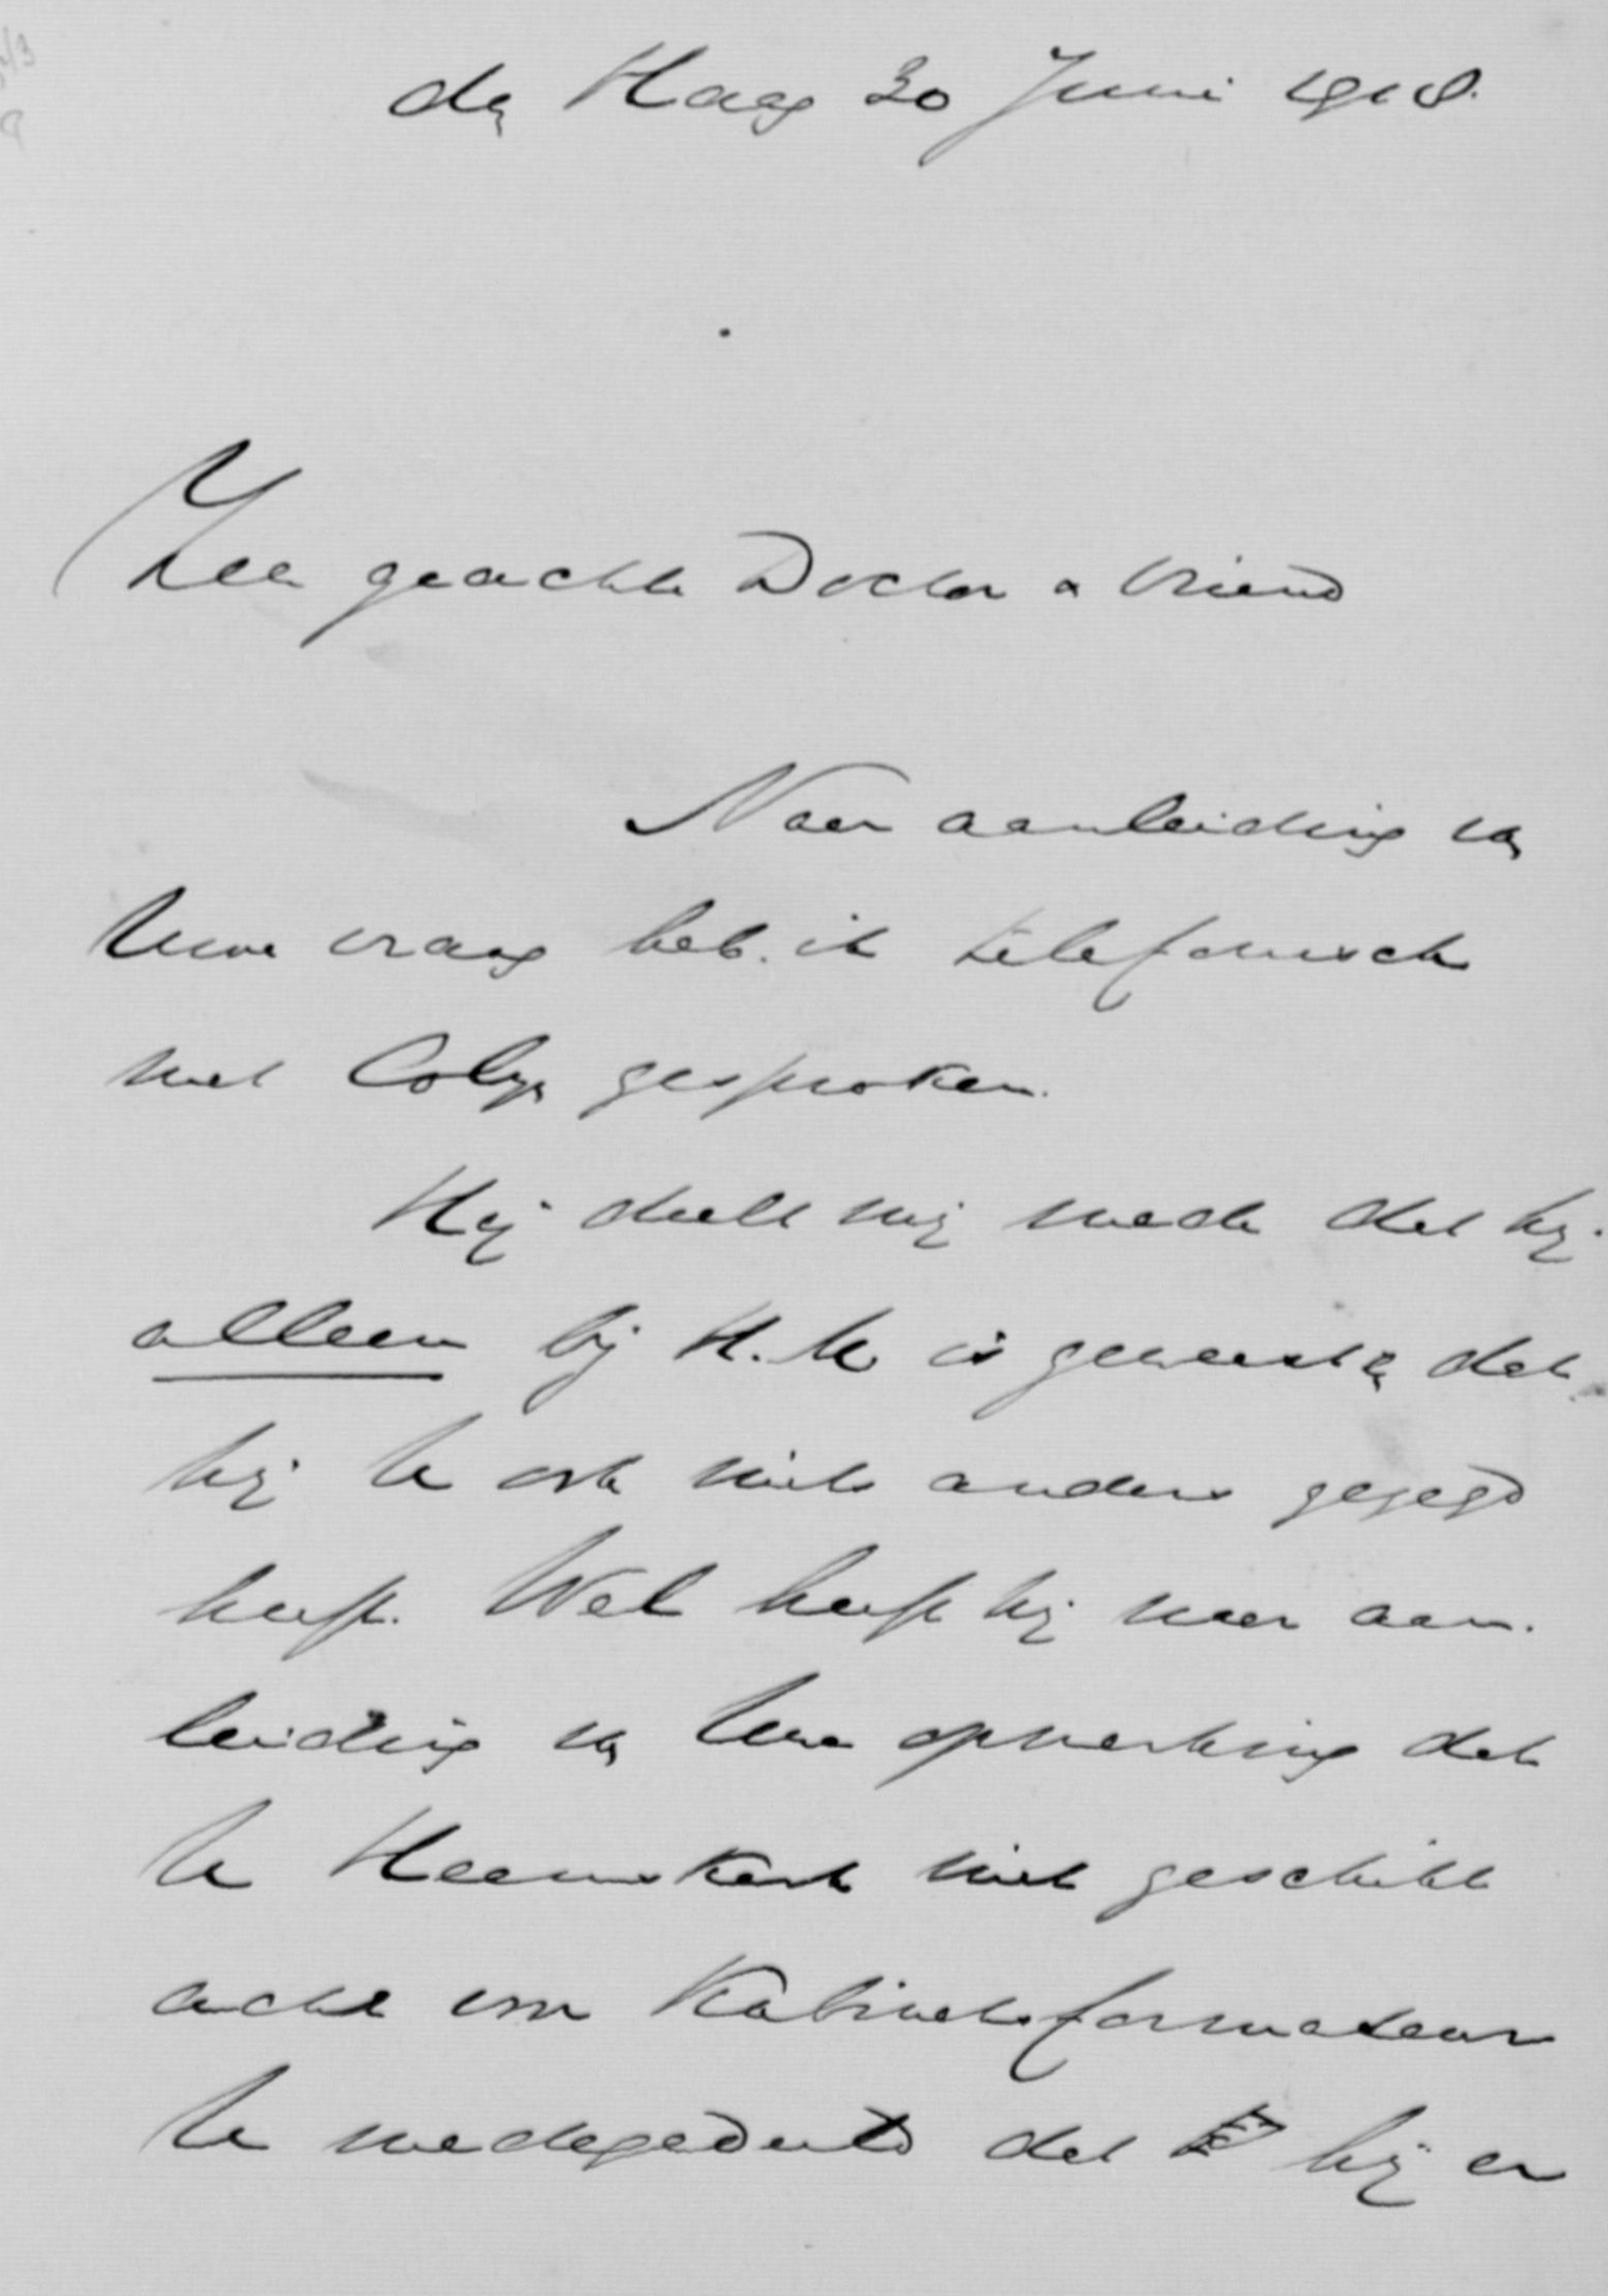 den Haag 30 Juni 1918.
Zeer geachte Doctor & Vriend
Naar aanleiding van
Uwe vraag heb ik telefonisch
met Colijn gesproken.
Hij deelt mij mede dat hij
alleen bij H.M. is geweest en dat
hij U ook niets anders gezegd
heeft. Wel heeft hij naar aan-
leiding van Uwe opmerking dat
U Heemskerk niet geschikt
acht voor Kabinetsformateur
U medegedeeld dat hij er